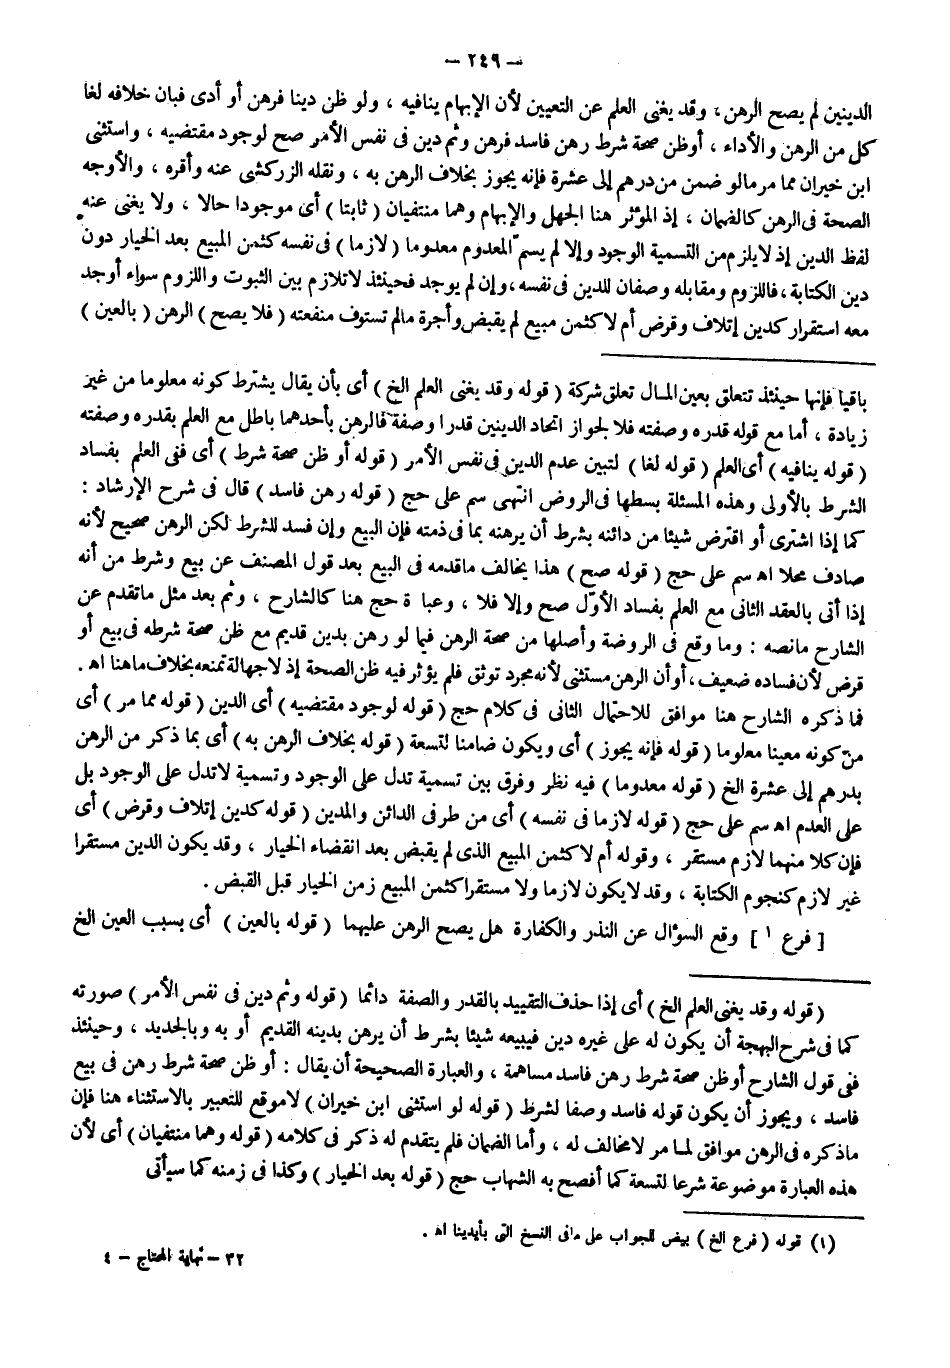 – ٢٤٩ –
الدينين لم يصح الرهن ، وقد يغنى العلم عن التعيين لأن الإبهام ينافيه ، ولو ظن دينا فرهن أو أدى فبان خلافه لغا
كل من الرهن والأداء ، أوظن صحة شرط رهن فاسد فرهن وثم دين فى نفس الأمر صح لوجود مقتضيه ، واستثنى
ابن خيران مما مر مالو ضمن من درهم إلى عشرة فإنه يجوز بخلاف الرهن به ، ونقله الزركشى عنه وأقره ، والأوجه
الصحة فى الرهن كالضمان ، إذ المؤثر هنا الجهل والإبهام وهما منتفيان ( ثابتا ) أى موجودا حالا ، ولا يغنى عنه
لفظ الدين إذ لايلزم من التسمية الوجود وإلا لم يسم المعدوم معدوما ( لازما ) فى نفسه كثمن المبيع بعد الخيار دون
دين الكتابة ، فاللزوم ومقابله وصفان للدين فى نفسه ، وإن لم يوجد فحينئذ لاتلازم بين الثبوت واللزوم سواء أوجد
معه استقرار كدين إتلاف وقرض أم لا كثمن مبيع لم يقبض وأجرة مالم تستوف منفعته ( فلا يصح ) الرهن ( بالعين )
باقيا فإنها حينئذ تتعلق بعين المال تعلق شركة ( قوله وقد يغنى العلم الخ ) أى بأن يقال يشترط كونه معلوما من غير
زيادة ، أما مع قوله قدره وصفته فلا لجواز اتحاد الدينين قدرا وصفة فالرهن بأحدهما باطل مع العلم بقدره وصفته
( قوله ينافيه ) أى العلم ( قوله لغا ) لتبين عدم الدين فى نفس الأمر ( قوله أو ظن صحة شرط ) أى فنى العلم بفساد
الشرط بالأولى وهذه المسئلة بسطها فى الروض انتهى سم على حج ( قوله رهن فاسد ) قال فى شرح الإرشاد :
كما إذا اشترى أو اقترض شيئا من دائنه بشرط أن يرهنه بما فى ذمته فإن البيع وإن فسد للشرط لكن الرهن صحيح لأنه
صادف محلا اه سم على حج ( قوله صح ) هذا يخالف ماقدمه فى البيع بعد قول المصنف عن بيع وشرط من أنه
إذا أتى بالعقد الثانى مع العلم بفساد الأوّل صح وإلا فلا ، وعبا ة حج هنا كالشارح ، وثم بعد مثل ماتقدم عن
الشارح مانصه : وما وقع فى الروضة وأصلها من صحة الرهن فيما لو رهن بدين قديم مع ظن صحة شرطه فى بيع أو
قرض لأن فساده ضعيف ، أو أن الرهن مستثنى لأنه مجرد توثق فلم يؤثر فيه ظن الصحة إذ لاجهالة تمنعه بخلاف ماهنا اه .
فما ذكره الشارح هنا موافق للاحتمال الثانى فى كلام حج ( قوله لوجود مقتضيه ) أى الدين ( قوله مما مر ) أى
من كونه معينا معلوما ( قوله فإنه يجوز ) أى ويكون ضامنا لتسعة ( قوله بخلاف الرهن به ) أى بما ذكر من الرهن
بدرهم إلى عشرة الخ ( قوله معدوما ) فيه نظر وفرق بين تسمية تدل على الوجود وتسمية لاتدل على الوجود بل
على العدم اه سم على حج ( قوله لازما فى نفسه ) أى من طرفى الدائن والمدين ( قوله كدين إتلاف وقرض ) أى
فإن كلا منهما لازم مستقر ، وقوله أم لا كثمن المبيع الذى لم يقبض بعد انقضاء الخيار ، وقد يكون الدين مستقرا
غير لازم كنجوم الكتابة ، وقد لايكون لازما ولا مستقرا كثمن المبيع زمن الخيار قبل القبض .
[ فرع ١ ] وقع السؤال عن النذر والكفارة هل يصح الرهن عليهما ( قوله بالعين ) أى بسبب العين الخ
( قوله وقد يغنى العلم الخ ) أى إذا حذف التقييد بالقدر والصفة دائما ( قوله وثم دين فى نفس الأمر ) صورته
كما فى شرح البهجة أن يكون له على غيره دين فيبيعه شيئا بشرط أن يرهن بدينه القديم أو به وبالجديد ، وحينئذ
ففى قول الشارح أوظن صحة شرط رهن فاسد مساهمة ، والعبارة الصحيحة أن يقال : أو ظن صحة شرط رهن فى بيع
فاسد ، ويجوز أن يكون قوله فاسد وصفا لشرط ( قوله لو استثنى ابن خيران ) لاموقع للتعبير بالاستثناء هنا فإن
ماذكره فى الرهن موافق لما مر لامخالف له ، وأما الضمان فلم يتقدم له ذكر فى كلامه ( قوله وهما منتفيان ) أى لأن
هذه العبارة موضوعة شرعا لتسعة كما أفصح به الشهاب حج ( قوله بعد الخيار ) وكذا فى زمنه كما سيأتى
(١) قوله ( فرع الخ ) بيض للجواب على مافى النسخ التى بأيدينا اه .
٣٢ – نهاية المحتاج – ٤